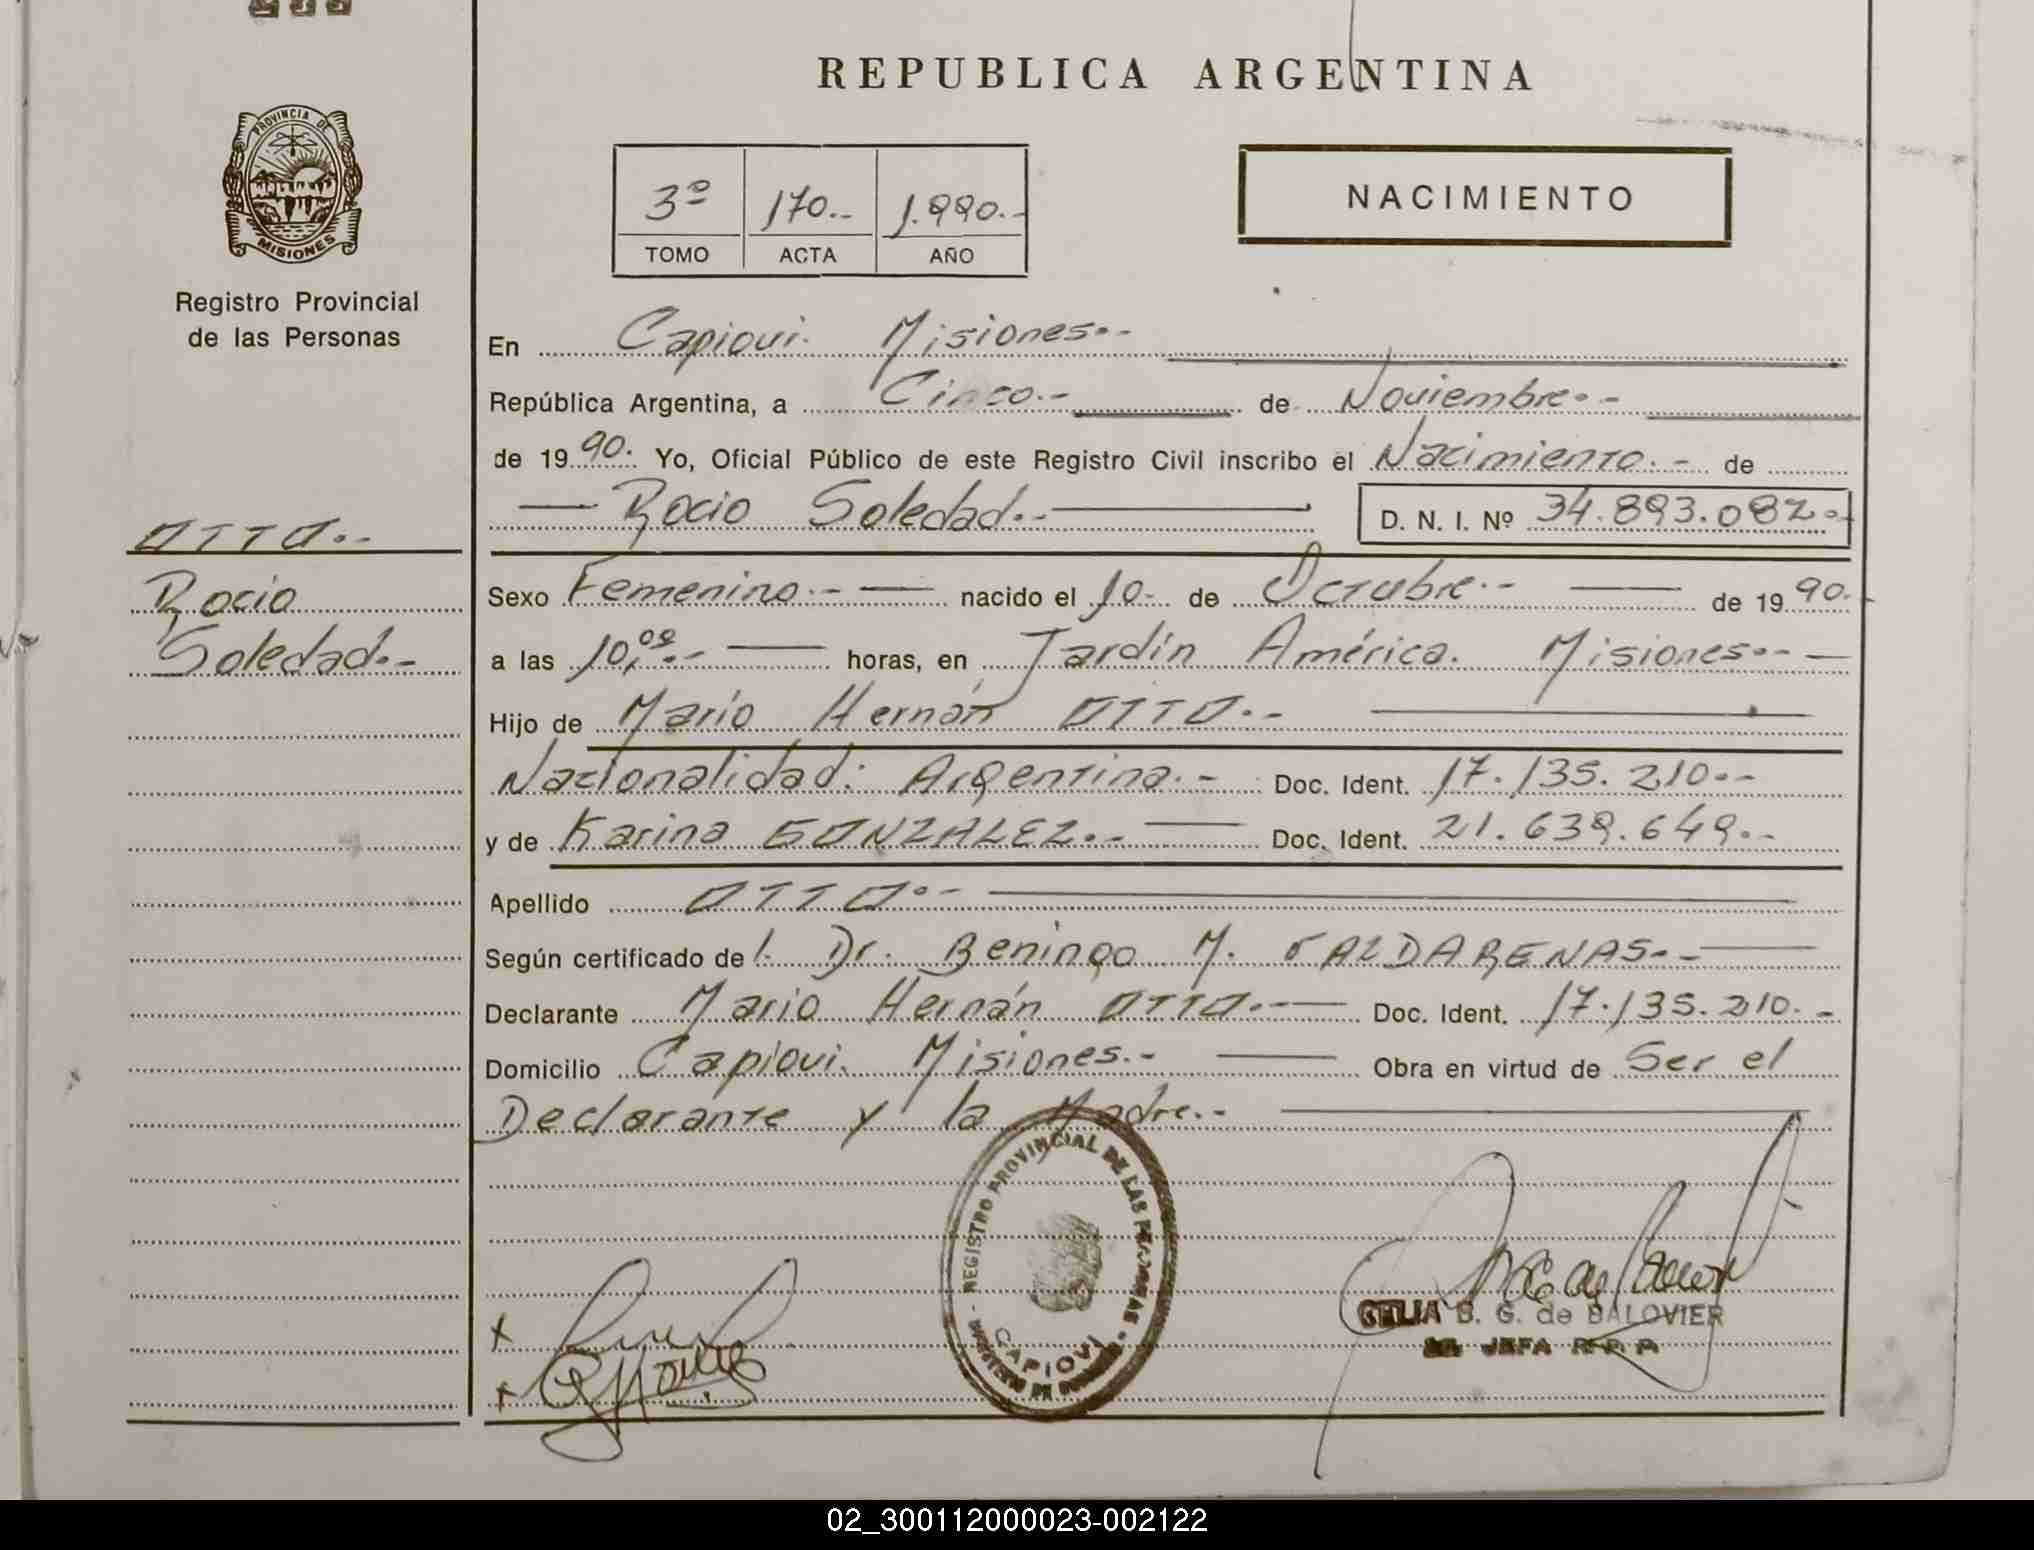 REPUBLICA ARGENTINA
PROVINCIA DE
MISIONES
Registro Provincial
de las Personas
3º 170.- 1.990.-
TOMO ACTA AÑO
NACIMIENTO
En Capiovi. Misiones.-
República Argentina, a Cinco.- de Noviembre.-
de 1990. Yo, Oficial Público de este Registro Civil inscribo el Nacimiento.- de
Rocio Soledad.- D. N. I. Nº 34.893.082.-
OTTO.-
Rocio
Soledad.-
Sexo Femenino.- nacido el 10- de Octubre.- de 1990.-
a las 10,00.- horas, en Jardín América. Misiones.-
Hijo de Mario Hernán OTTO.-
Nacionalidad: Argentina.- Doc. Ident. 17.135.210.-
y de Karina GONZALEZ.- Doc. Ident. 21.639.649.-
Apellido OTTO.-
Según certificado del. Dr. Beningo M. VALDARENAS.-
Declarante Mario Hernán OTTO.- Doc. Ident. 17.135.210.-
Domicilio Capiovi. Misiones.- Obra en virtud de Ser el
Declarante y la Madre.-
REGISTRO PROVINCIAL DE LAS PERSONAS
CAPIOVI
CELIA B. G. de BALOVIER
JEFA R.P.P
02_300112000023-002122